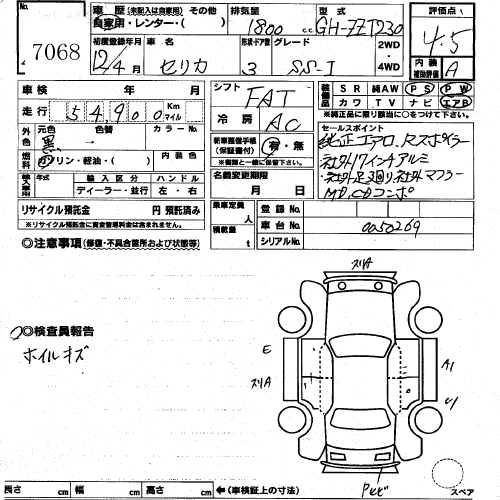 No.
7068
車歴(未記入は自家用) その他
自家用・レンター・( )
排気量
1800 cc
型式
GH-ZZT230
評価点
4.5
初度登録年月
12/4月
車名
セリカ
形状・ドア数
3
グレード
SS-I
2WD
・
4WD
内装
補助評価
A
車検 年 月
シフト
FAT
装備品
SR 純AW PS PW
カワ TV ナビ エアB
※純正品に限り該当に○をつけて下さい
走行 54,900 Km マイル
冷房
AC
外色
元色 色替 カラーNo.
黒
内装色
燃料
ガソリン・軽油・( )
新車整備手帳
(保証書付)
有・無
※書類と一緒に後送されます。
セールスポイント
純正エアロ、Rスポイラー
社外17インチアルミ
社外足回り社外マフラー
MD,CDコンポ
輸入車用
年式 輸入区分 ハンドル
ディーラー・並行 左・右
名義変更期限
月 日
リサイクル預託金 円 預託済み
※リサイクル預託金に資金管理料金は含まれません。
乗車定員 人
積載量 t
登録No.
車台No. 0050269
シリアルNo.
◎注意事項(修復・不具合箇所および状態等)
スリA
◎検査員報告
ホイルキズ
E
スリA
A1
U1
長さ cm 幅 cm 高さ cm ←(車検証上の寸法)
スペア